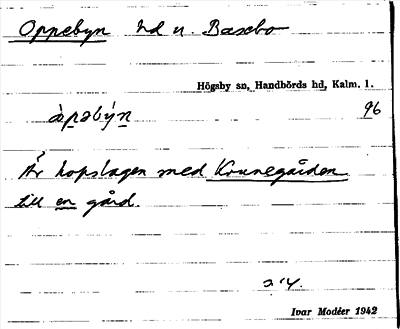 Oppebyn hd u. Baxebo
Högsby sn, Handbörds hd, Kalm. l.
àp̲əbýn̲ 96
Är hopslagen med Krunegården
till en gård.
Ivar Modéer 1942